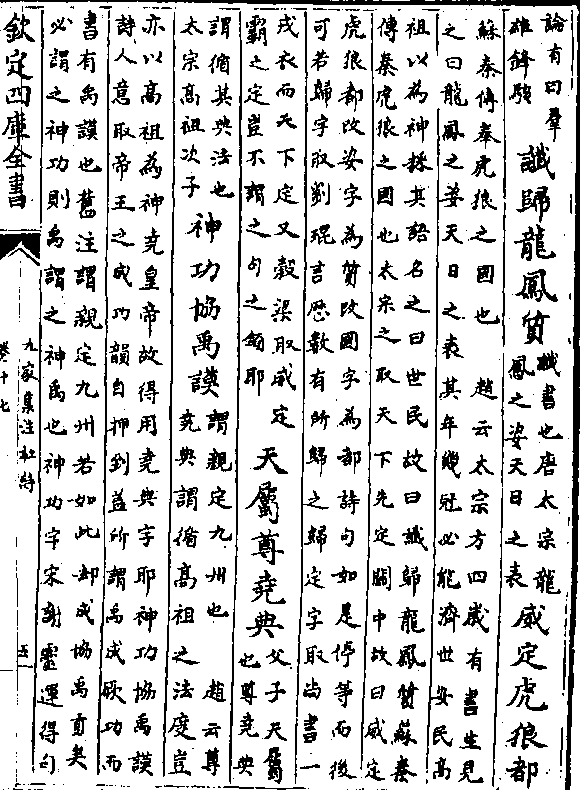 論有曰羣
雄鋒駿
讖歸龍鳳質
讖書也唐太宗龍
鳳之姿天日之表
威定虎狼都
蘇秦傳秦虎狼之國也　趙云太宗方四歲有書生見
之曰龍鳳之姿天日之表其年幾冠必能濟世安民高
祖以為神採其語名之曰世民故曰讖歸龍鳳質蘇秦
傳秦虎狼之國也太宗之取天下先定關中故曰威定
虎狼都改姿字為質改國字為都詩句如是停等而後
可若歸字取劉琨言厯數有所歸之歸定字取尚書一
戎衣而天下定又穀梁取威定
霸之定豈不謂之句之耶
天屬尊堯典
父子天屬
也尊堯典
謂循其典法也
太宗高祖次子
神功協禹謨
謂親定九州也　趙云尊
堯典謂循高祖之法度豈
亦以高祖為神堯皇帝故得用堯典字耶神功協禹謨
詩人意取帝王之成功韻自押到蓋所謂禹成厥功而
書有禹謨也舊注謂親定九州若如此却成協禹貢矣
必謂之神功則禹謂之神禹也神功字宋謝靈運得句
欽定四庫全書
九家集注杜詩
卷十七
五